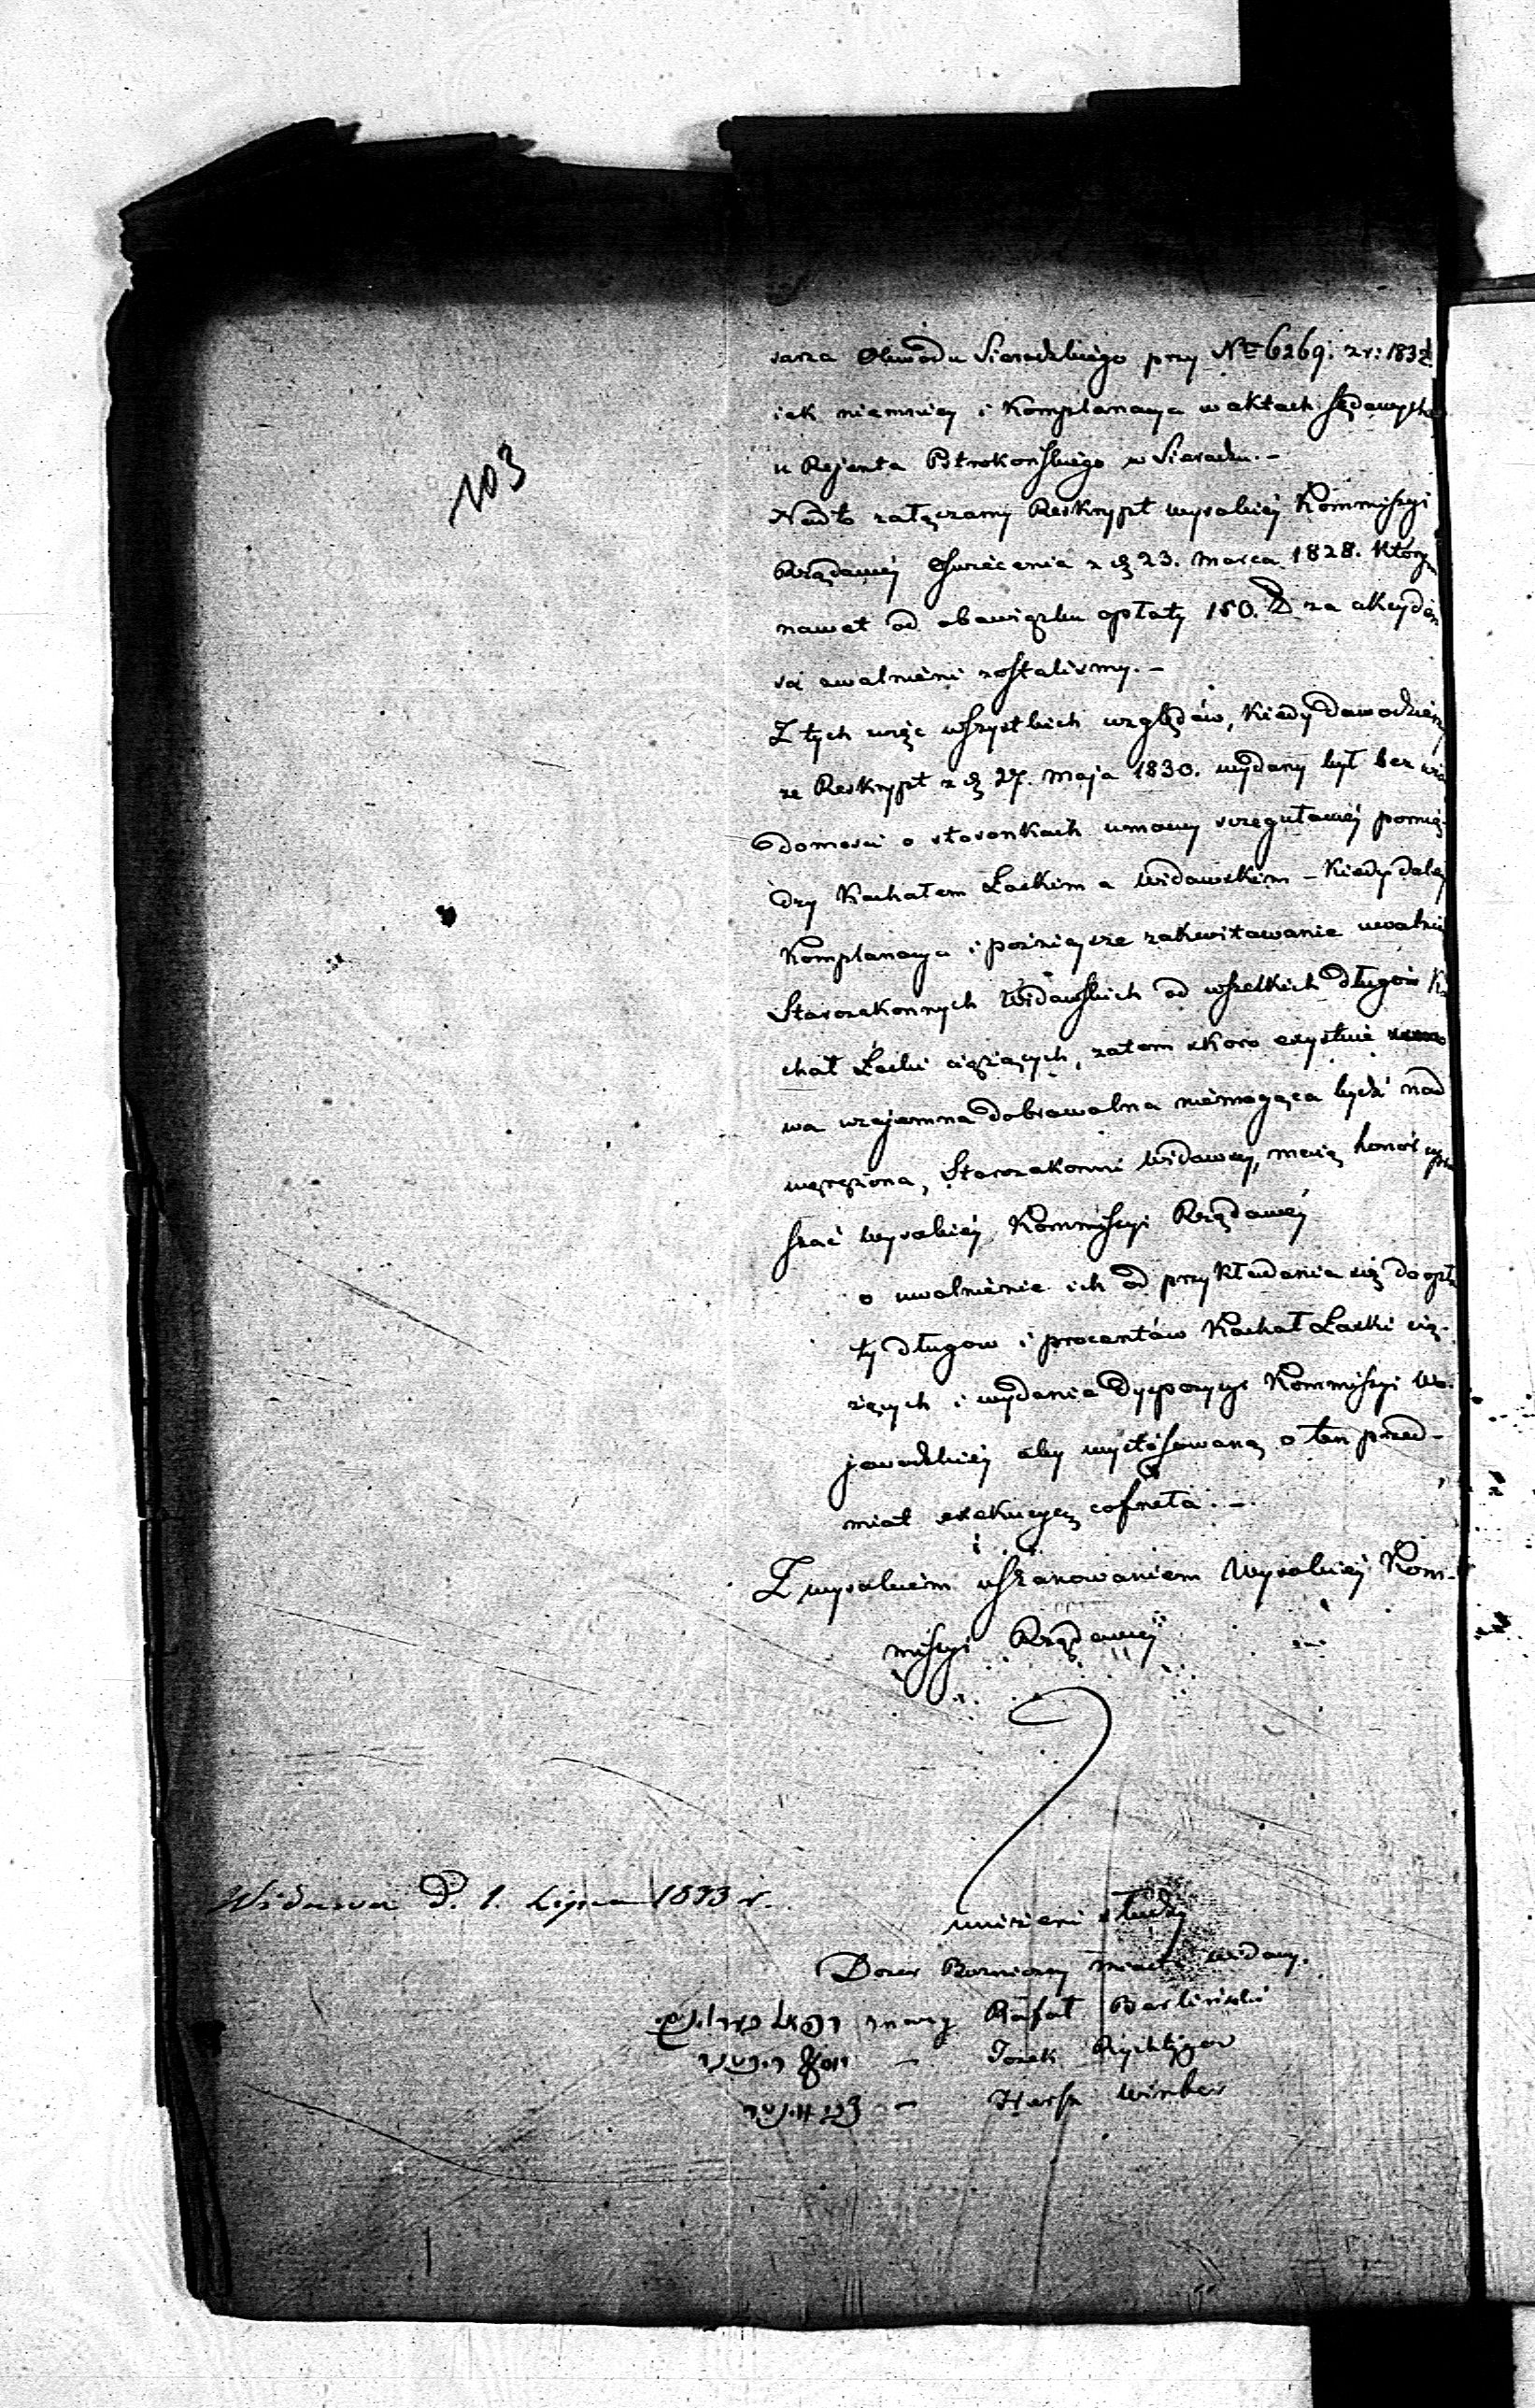 103
sarza Obwodu Sieradzkiego przy Nr 6269. z r: 1832
iak niemniey i Komplanacya w aktach Sądowych
u Rejenta Pstrokońskiego w Sieradzu. -
Nadto załączamy Reskrypt wysokiey Kommissyi
Rządowéy Oświecenia z d 23. Marca 1828. którym
nawet od obowiązku opłaty 150. za akcyden
sa zwolnieni zostaliśmy. -
Z tych więc wszystkich względów, kiedy dowodziem
że Reskrypt z d 27. Maja 1830. wydany był bez wia
domości o stosonkach umowy szczegułowéy pomię-
dzy Kachałem Łaskim a Widawskim - Kiedy daléy
Komplanacya i pożnieysze zakwitowanie uwalnia
Starozakonnych Widawskich od wszelkich długów Ka
chał Łaski ciążących, zatem skoro exystuie
wa wzajemna dobrowolna niemogąca bydź nad
węrężona, Starozakonni Widawscy, maią honor upra
szać wysokiéy Kommissyi Rządowéy
o uwolnienie ich od przykładania się do opła
ty długow i procentów Kachał Łaski cią-
żących i wydania Dyspozycyi Kommissyi Wo-
jewodzkiéy aby wystósowaną o ten przed-
miot exekucyą cofneła. -
Z wysokiem uszanowaniem Wysokiéy Kom-
missyi Rządowéy
Widawa D. 1. Lipca 1833 r.
uniżeni słudzy
Dozor Bożniczny miasta Widawy.
Rafał Berliński
Josek Rychtyger
Hersz Winber